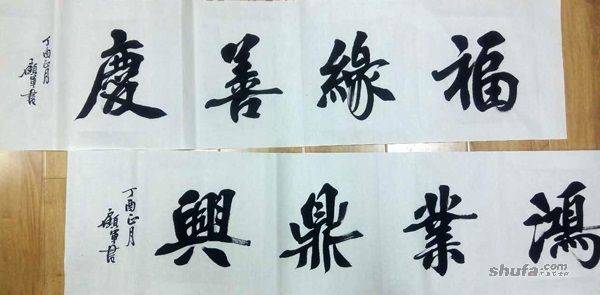 福緣善慶
丁酉正月
鴻業鼎興
丁酉正月
shufa.com